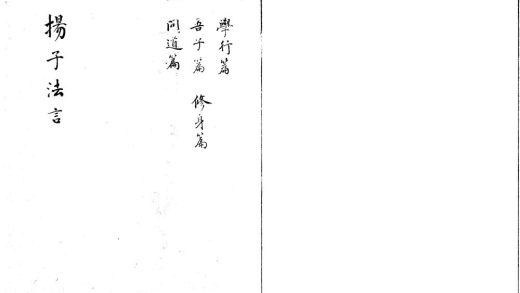 學行篇
吾子篇　修身篇
問道篇
揚子法言